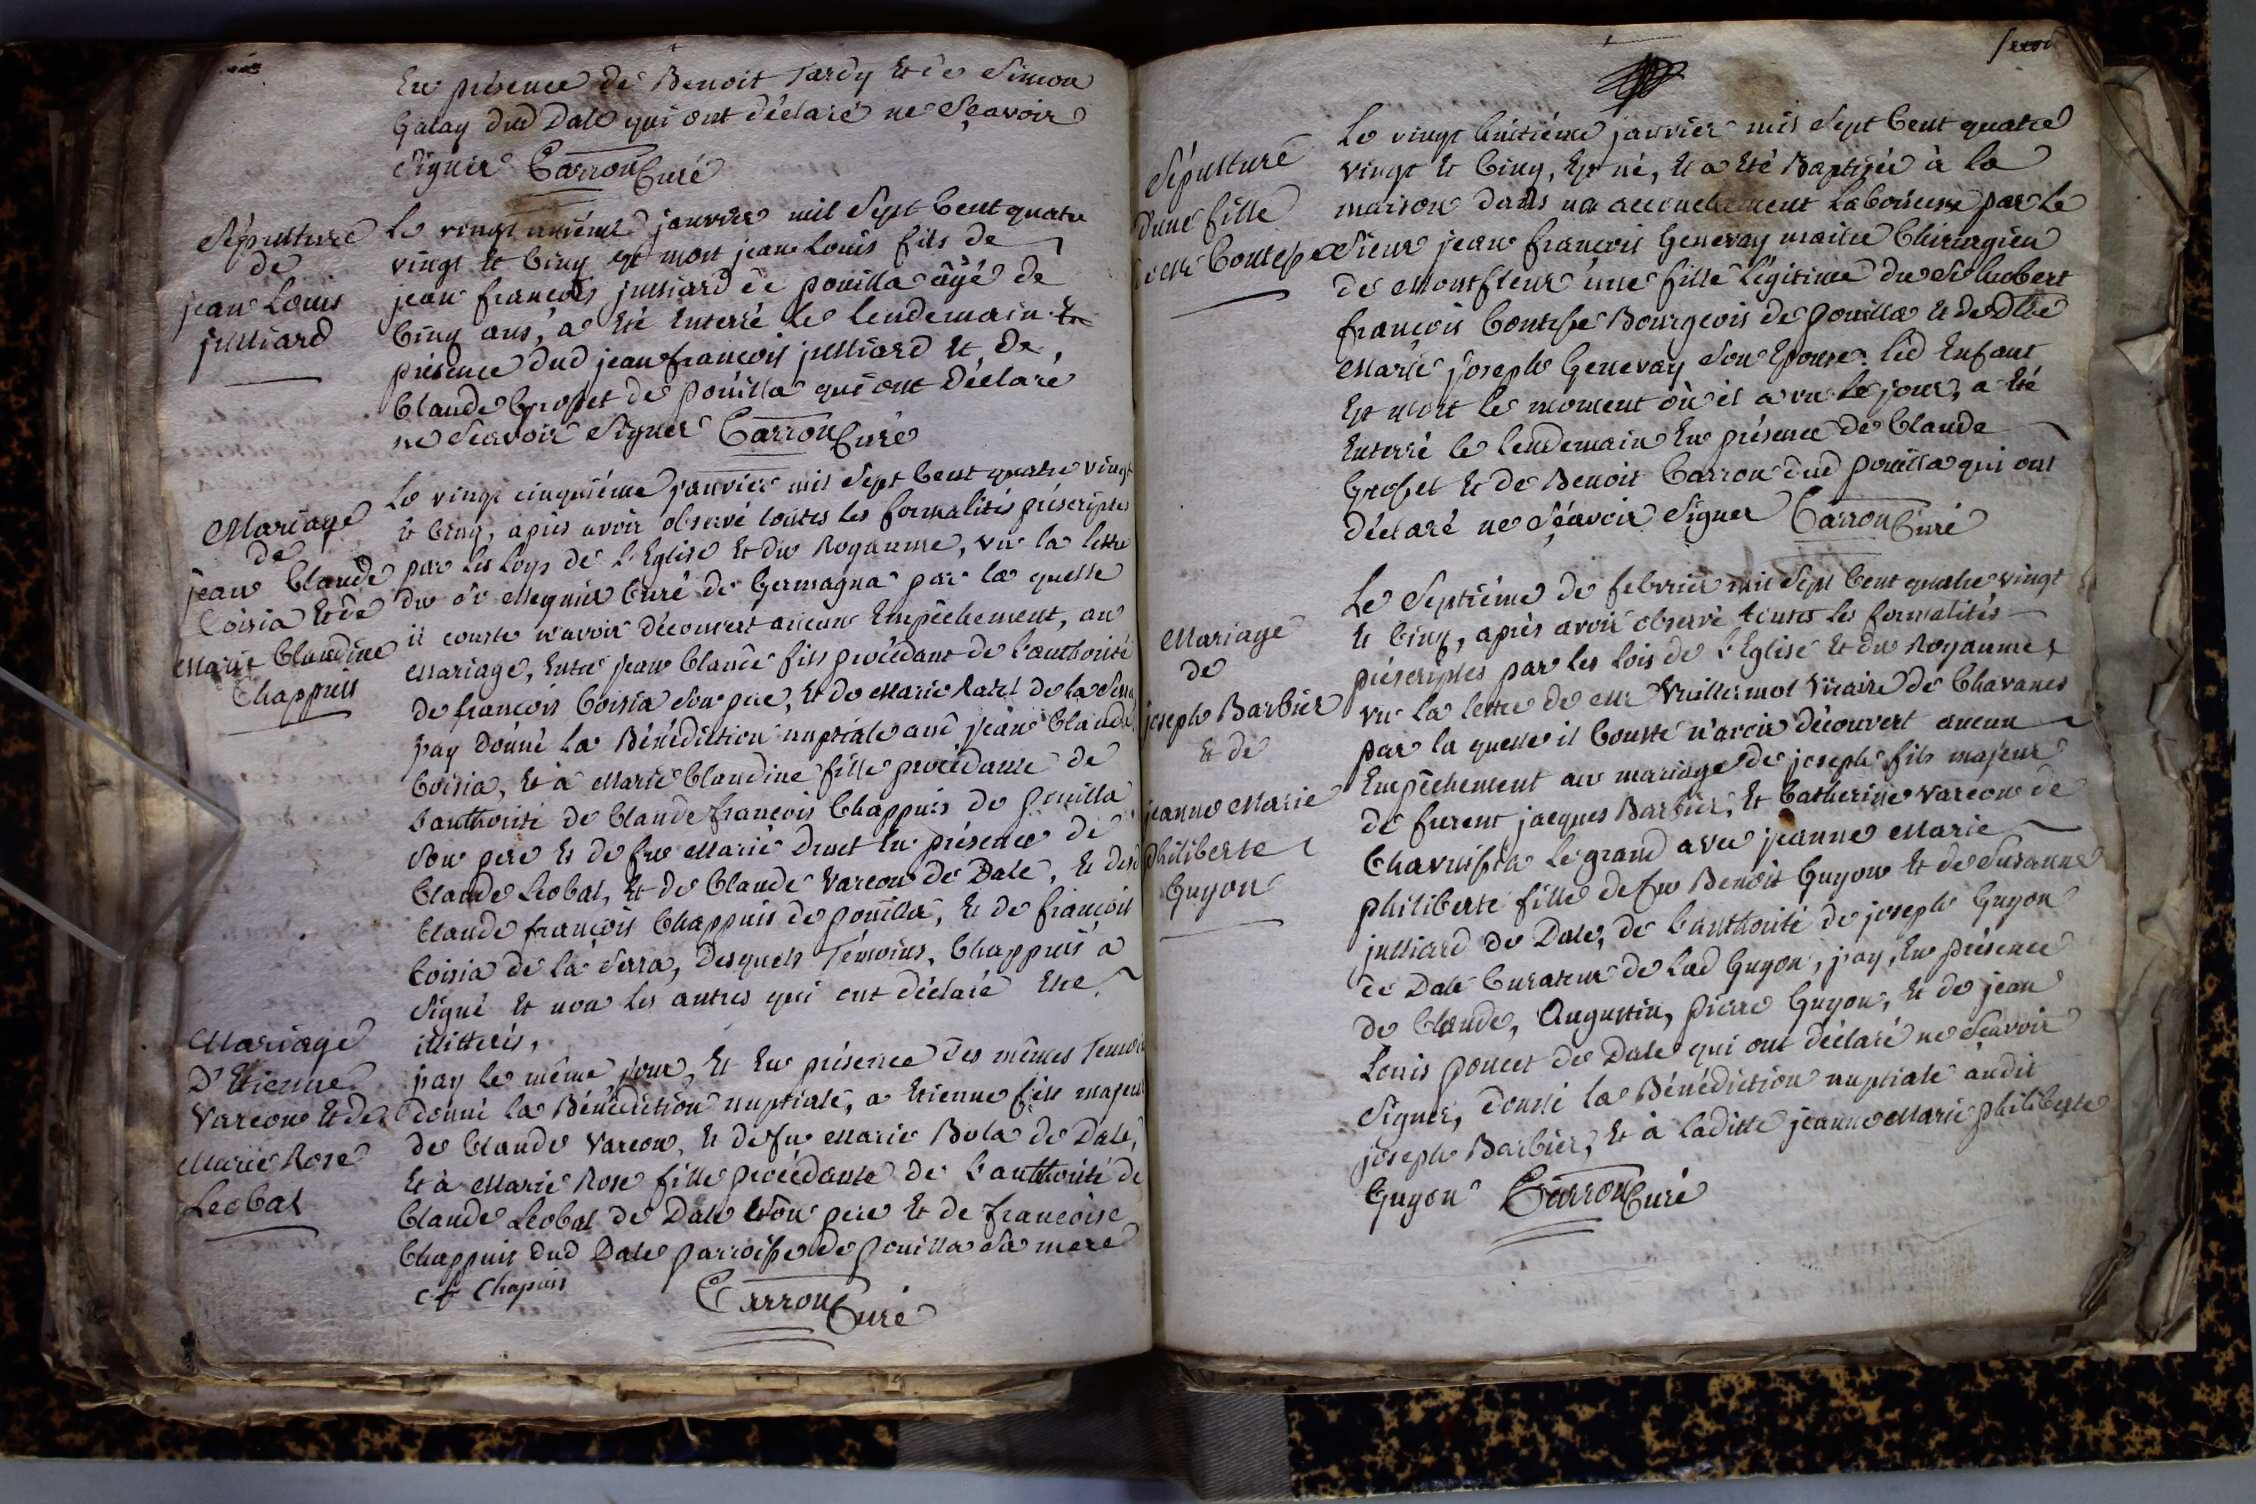 En présence de Benoit Tardy Et de Simon
Galay dud Dale qui ont déclaré ne Sçavoir
Signer Carron Curé
Sépulture
de
jean Louis
julliard
Le vingt uniéme janvier mil Sept Cent quatre
vingt Et Cinq Est mort jean Louis fils de
jean francois julliard de pouilla âgé de
Cinq ans, a Eté Enterré le lendemain En
présence dud jean francois julliard Et de
Claude Grosset de pouilla qui ont Déclaré
ne Scavoir Signer Carron Curé
Mariage
de
jean Claude
Coisia Et de
Marie Claudine
Chappuis
Le vingt cinquiéme janvier mil Sept Cent quatre vingt
Et Cinq, après avoir observé toutes les formalités préscriptes
par les loys de L'Eglise Et du Royaume, vu la lettre
du Sr Meynier Curé de Germagna par la quelle
il conste n'avoir découvert aucun Empêchement, au
Mariage, Entre jean Claude fils procédant de L'authorité
de francois Coisia Son pere, Et de Marie Ratel de la Serra
jay Donné La Bénédiction nuptiale aud jean Claude
Coisia, Et à Marie Claudine fille procédante de
L'authorité de Claude françois Chappuis de pouilla
Son pere Et de fue Marie Druet En présence de
Claude Leobal, Et de Claude Vareon de Dale, Et dud
Claude françois Chappuis de pouilla, Et de francois
Coisia de la Serra, Desquels Témoins, Chappuis a
Signé Et non les autres qui ont déclaré Etre
illitterés,
Mariage
D'Etienne
Vareon Et de
Marie Rose
Leobal
jay le même jour, Et En présence des mêmes Temoins
donné la Bénédiction nuptiale, a Etienne fils majeur
de Claude Vareon, Et de fue Marie Bola de Dale,
Et à Marie Rose fille procédante de L'authorité de
Claude Leobal de Dale Son pere Et de francoise
Chappuis dud Dale parroisse de pouilla Sa mere
c f Chapuis
Carron Curé
Sépulture
d'une fille
Contesse
Le vingt huitiéme janvier mil Sept Cent quatre
vingt Et Cinq, Est né, Et a Eté Baptisée à la
maison dans un accouchement Laborieux par Le
Sieur jean françois Genevay maitre Chirurgien
de Montfleur une fille Légitime du Sr hubert
françois Contesse Bourgeois de pouilla Et de dlle
Marie joseph Genevay Son Epouse. led Enfant
Est mort le moment où il a vu le jour, a Eté
Enterré le lendemain En présence de Claude
Grosset Et de Benoit Carron dud pouilla qui ont
Déclaré ne Sçavoir Signer Carron Curé
Mariage
de
joseph Barbier
Et de
jeanne Marie
philiberte
Guyon
Le Septiéme de febvrier mil Sept Cent quatre vingt
Et Cinq, après avoir observé toutes les formalités
préscriptes par les lois de L'Eglise Et du Royaume,
vu la lettre de Mr Vuillermot Vicaire de Chavanes
par la quelle il Conste n'avoir découvert aucun
Empêchement au mariage de joseph fils majeur
de furent jacques Barbier, Et Catherine Vareon de
Chavuissia Le grand avec jeanne Marie
philiberte fille de fu Benoit Guyon Et de Susanne
julliard de Dale, de L'authorité de joseph Guyon
de Dale Curateur de Lad Guyon, jay, En présence
de Claude, Augustin, pierre Guyon, Et de jean
Louis poncet de Dale qui ont déclaré ne Sçavoir
Signer, donné la Bénédiction nuptiale audit
joseph Barbier, Et à laditte jeanne Marie philiberte
Guyon Carron Curé